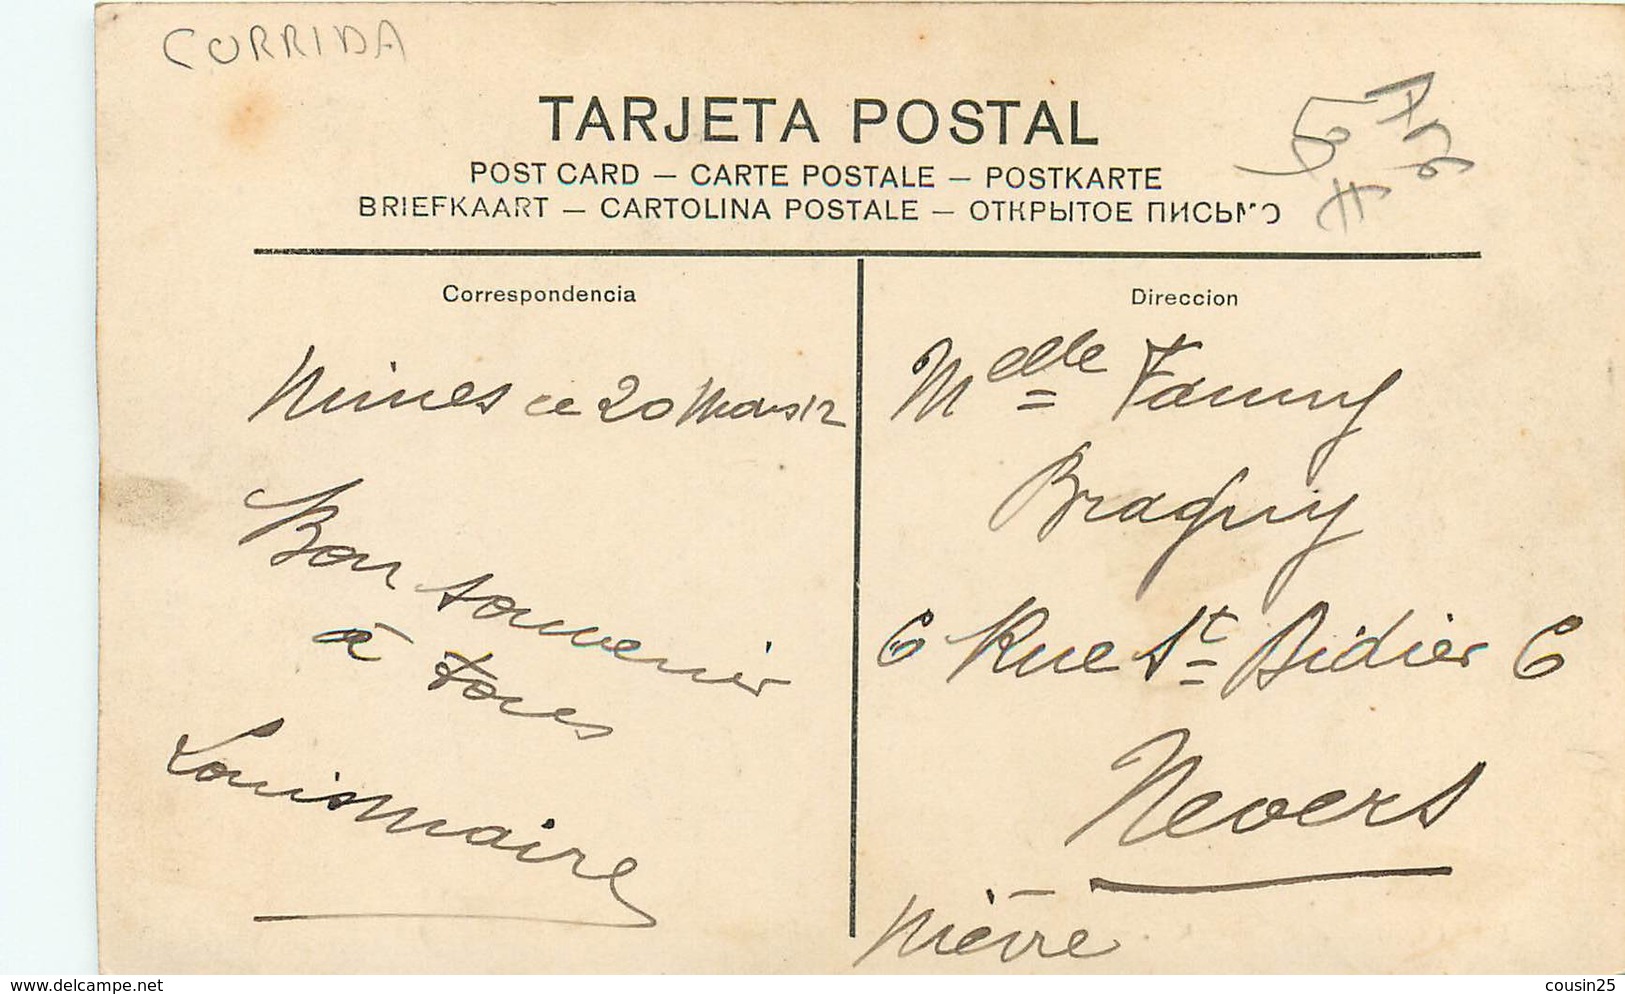 CORRIDA
TARJETA POSTAL
POST CARD — CARTE POSTALE — POSTKARTE
BRIEFKAART — CARTOLINA POSTALE — ОТКРЫТОЕ ПИСЬМО
Correspondencia
Nimes ce 20 Mars 12
Bon souvenir
à tous
Louis Maire
Direccion
Melle Fanny
Bragny
6 Rue St Didier 6
Nevers
Nièvre
www.delcampe.net
cousin25